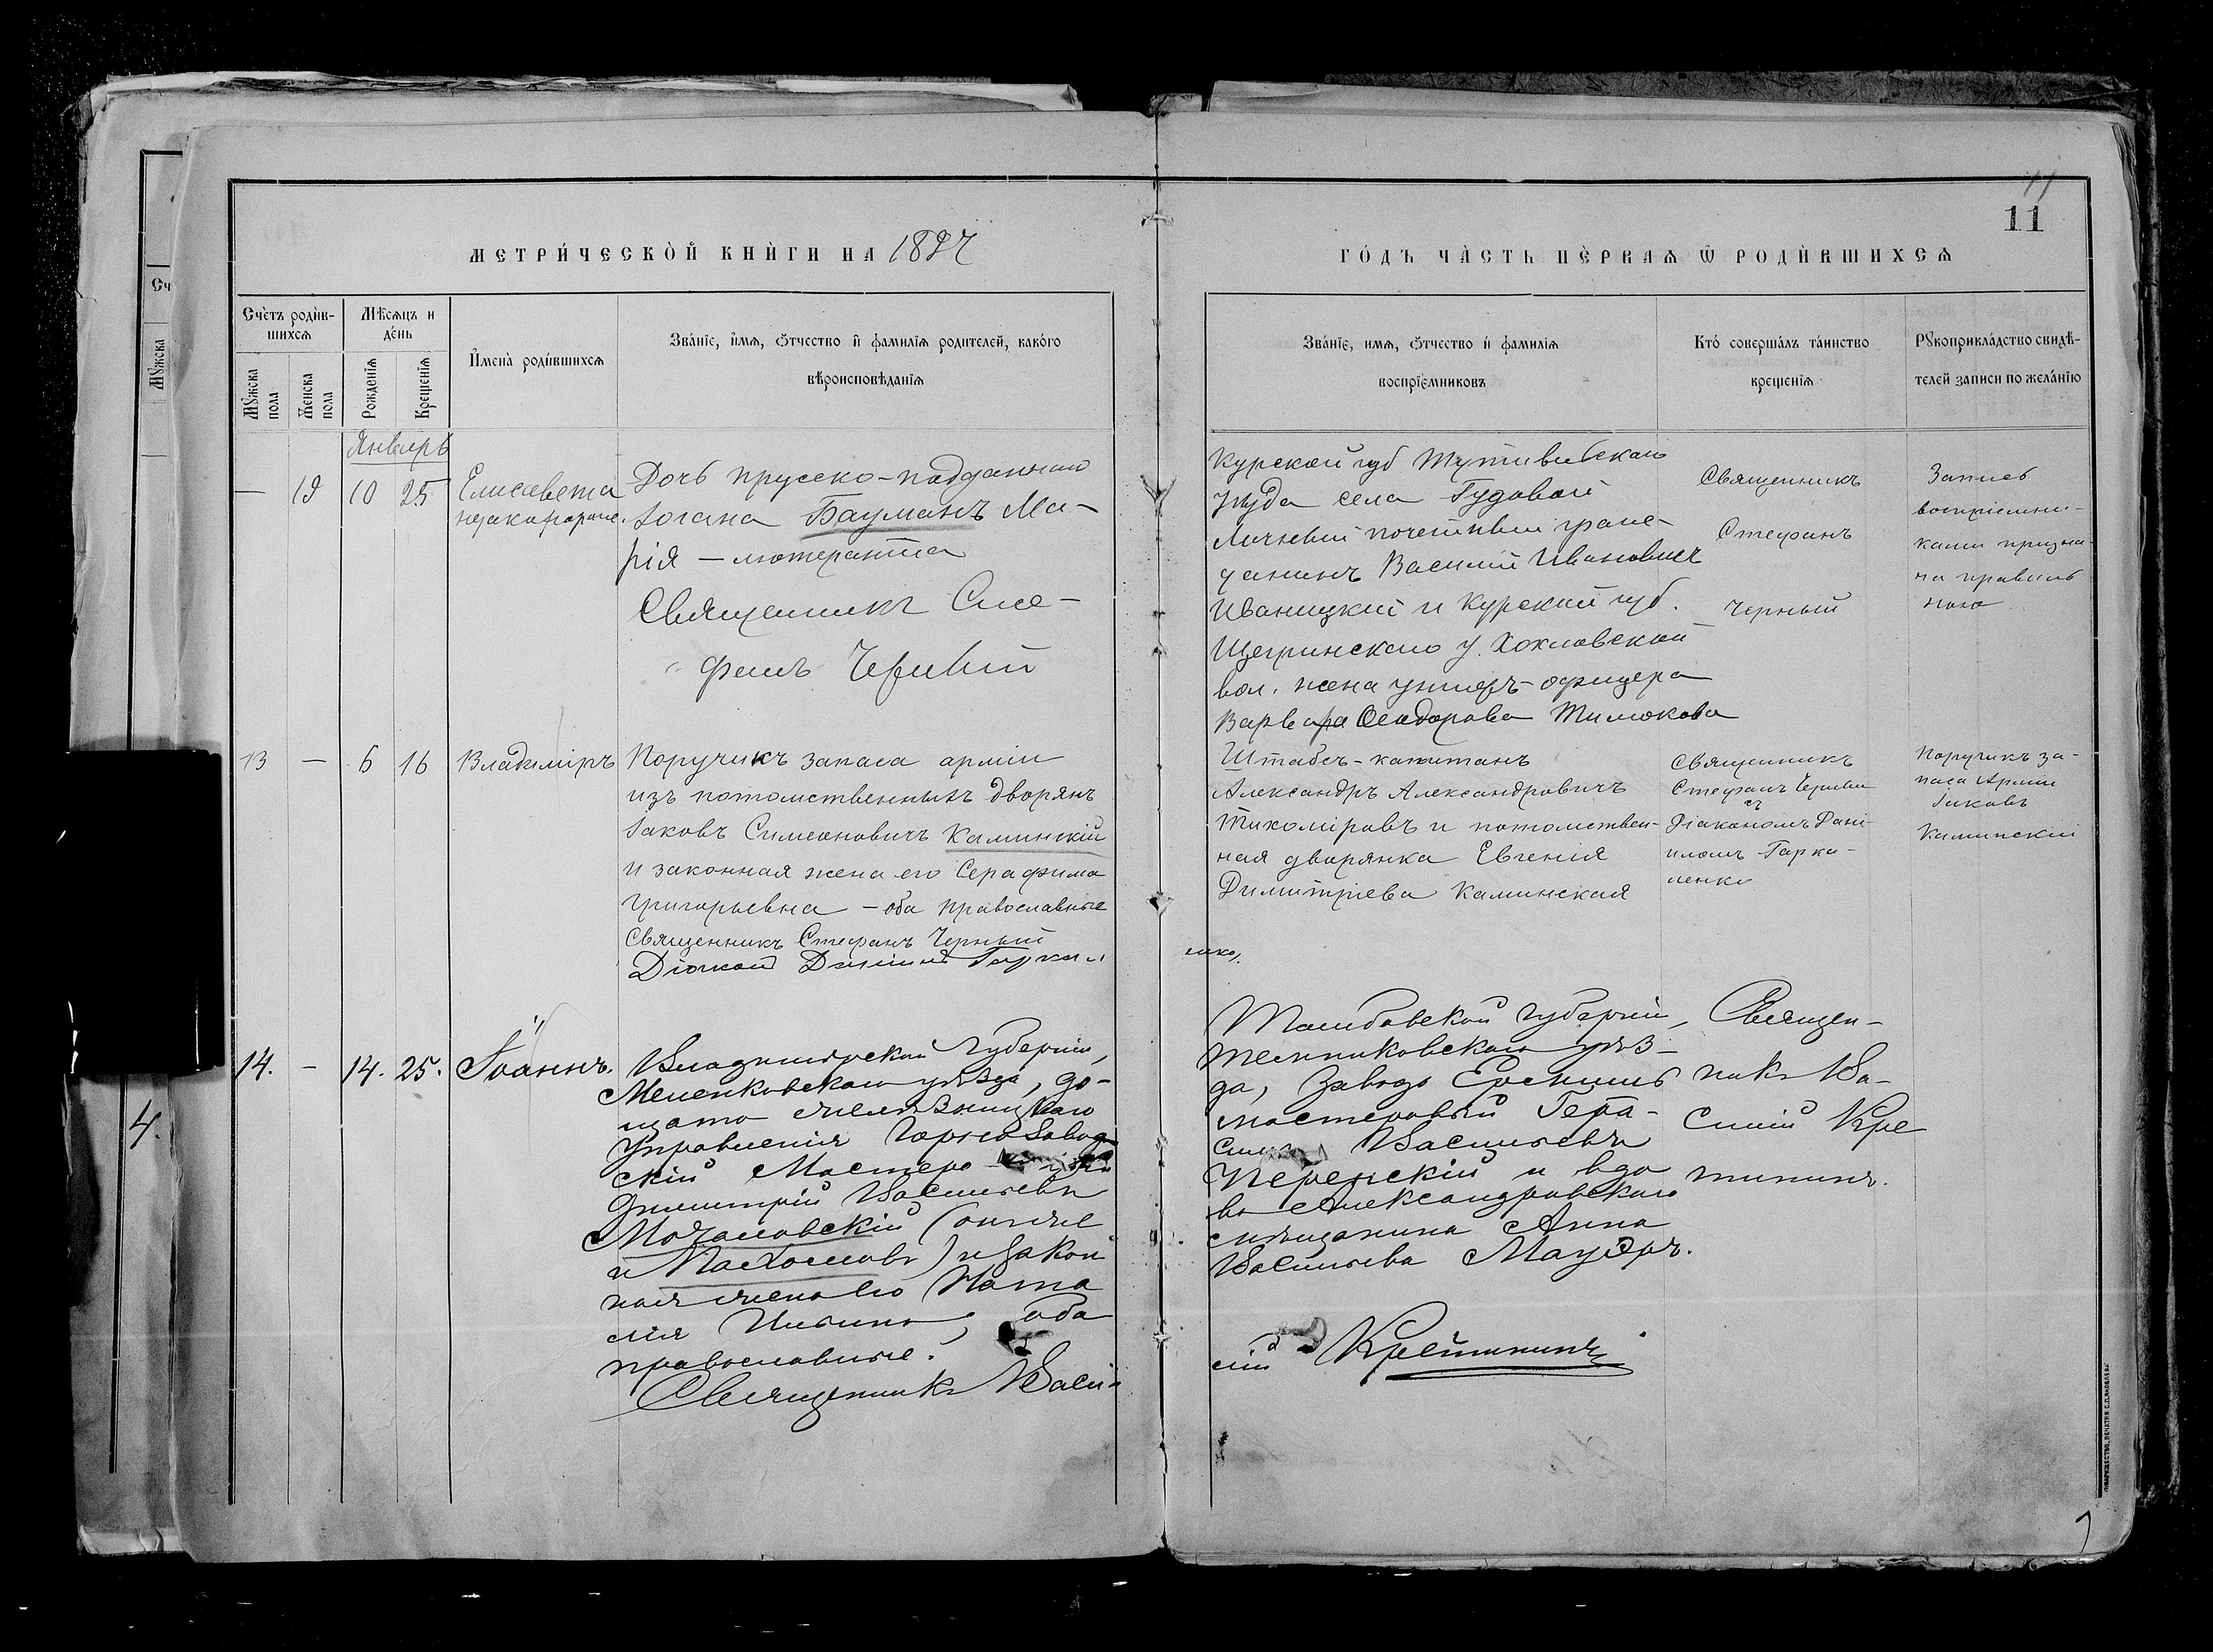 11
11
МЕТРИ́ЧЕСКО́Й КНИ́ГИ НА 1897
ГО́ДЪ ЧА́СТЬ ПЕ́РВАѦ Ѿ РОДИ́ВШИХСѦ
Сче́тъ роди́в-
шихсѧ
Мꙋжска
пола
Женска
пола
Мѣсѧцъ и
де́нь
Рожденїѧ
Крещенїѧ
И҆мена̀ роди́вшихсѧ
Зва́нїе, и҆мѧ, ѻ҆тчество и҆ фамилїѧ родителей, како́го
вѣроисповѣданїѧ
Зва́нїе, имѧ, ѻ҆тчество и҆ фамилїѧ
воспрїе́мниковъ
Кто́ соверша́лъ та́инство
крещенїѧ
Рꙋкоприкла́дство свидѣ-
телей записи по жела́нїю
Январь
— 19 10 25 Елисавета
Дочь прусско-подданного
Іогана Бауманъ Ма-
рія — лютеранка
Священникъ Сте-
фанъ Черный
Курской губ Путивльскаго
уѣзда села Гудовой
Личный почетный граж-
данинъ Василій Ивановичъ
Иваницкій и Курской губ.
Щегринскаго у. Хохловской
вол. жена унтеръ-офицера
Варвара Феодорова Тимохова
Священникъ
Стефанъ
Черный
Запись
воспріемни-
ками призна-
на правиль
ною
13 — 6 16 Владиміръ
Поручикъ запаса арміи
изъ потомственныхъ дворянъ
Іаковъ Симеоновичъ Каминскій
и законная жена его Серафима
Григорьевна — оба православные
Священникъ Стефанъ Черный
Діаконъ Даніилъ Гарка-
ленко.
Штабсъ-капитанъ
Александръ Александровичъ
Тихоміровъ и потомствен-
ная дворянка Евгенія
Димитріева Каминская
Священникъ
Стефанъ Черный
съ
Діакономъ Дані-
иломъ Гарка-
ленко
Поручикъ за-
паса Арміи
Іаковъ
Каминскій
14. — 14. 25. Іоаннъ.
Владимірской Губерніи,
Меленковскаго уѣзда, до-
щато желѣзницкаго
Управленія Горнозавод-
скій Мастеро
Димитрій Васильевъ
Мочаловскій (онъ же
и Пахомовъ) и закон
ная жена его Ната
лія Ильина, оба
православные.
Священникъ Васи-
лій Крестининъ
Тамбовской губерніи,
Темниковскаго уѣз-
да, завода Еремшъ
мастеровый Гера-
симъ Васильевъ
Перерскій и вдо
ва Александровскаго
мѣщанина Анна
Васильева Мауэръ.
Священ-
никъ Ва-
силій Кре
тининъ.
4.
ТОВАРИЩЕСТВО „ПЕЧАТНЯ С.П. ЯКОВЛЕВА“